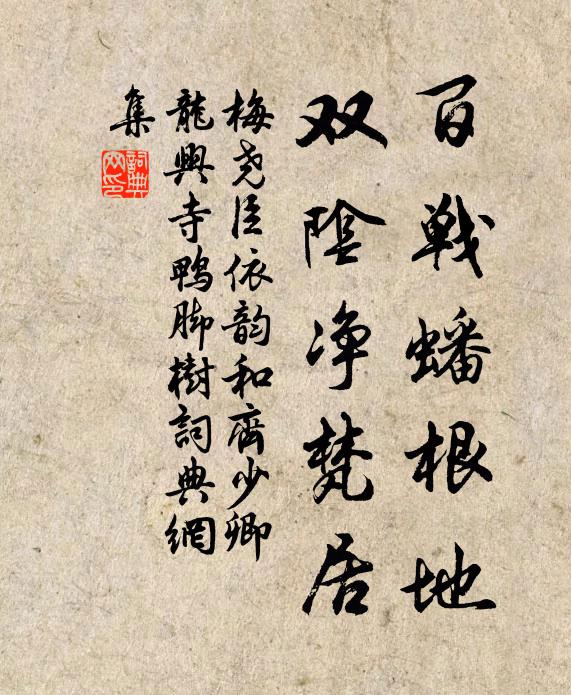 百戰蟠根地
双陰净梵居
梅尧臣依韵和齊少卿
龍興寺鴨脚樹詞典網
集
詞典
网印